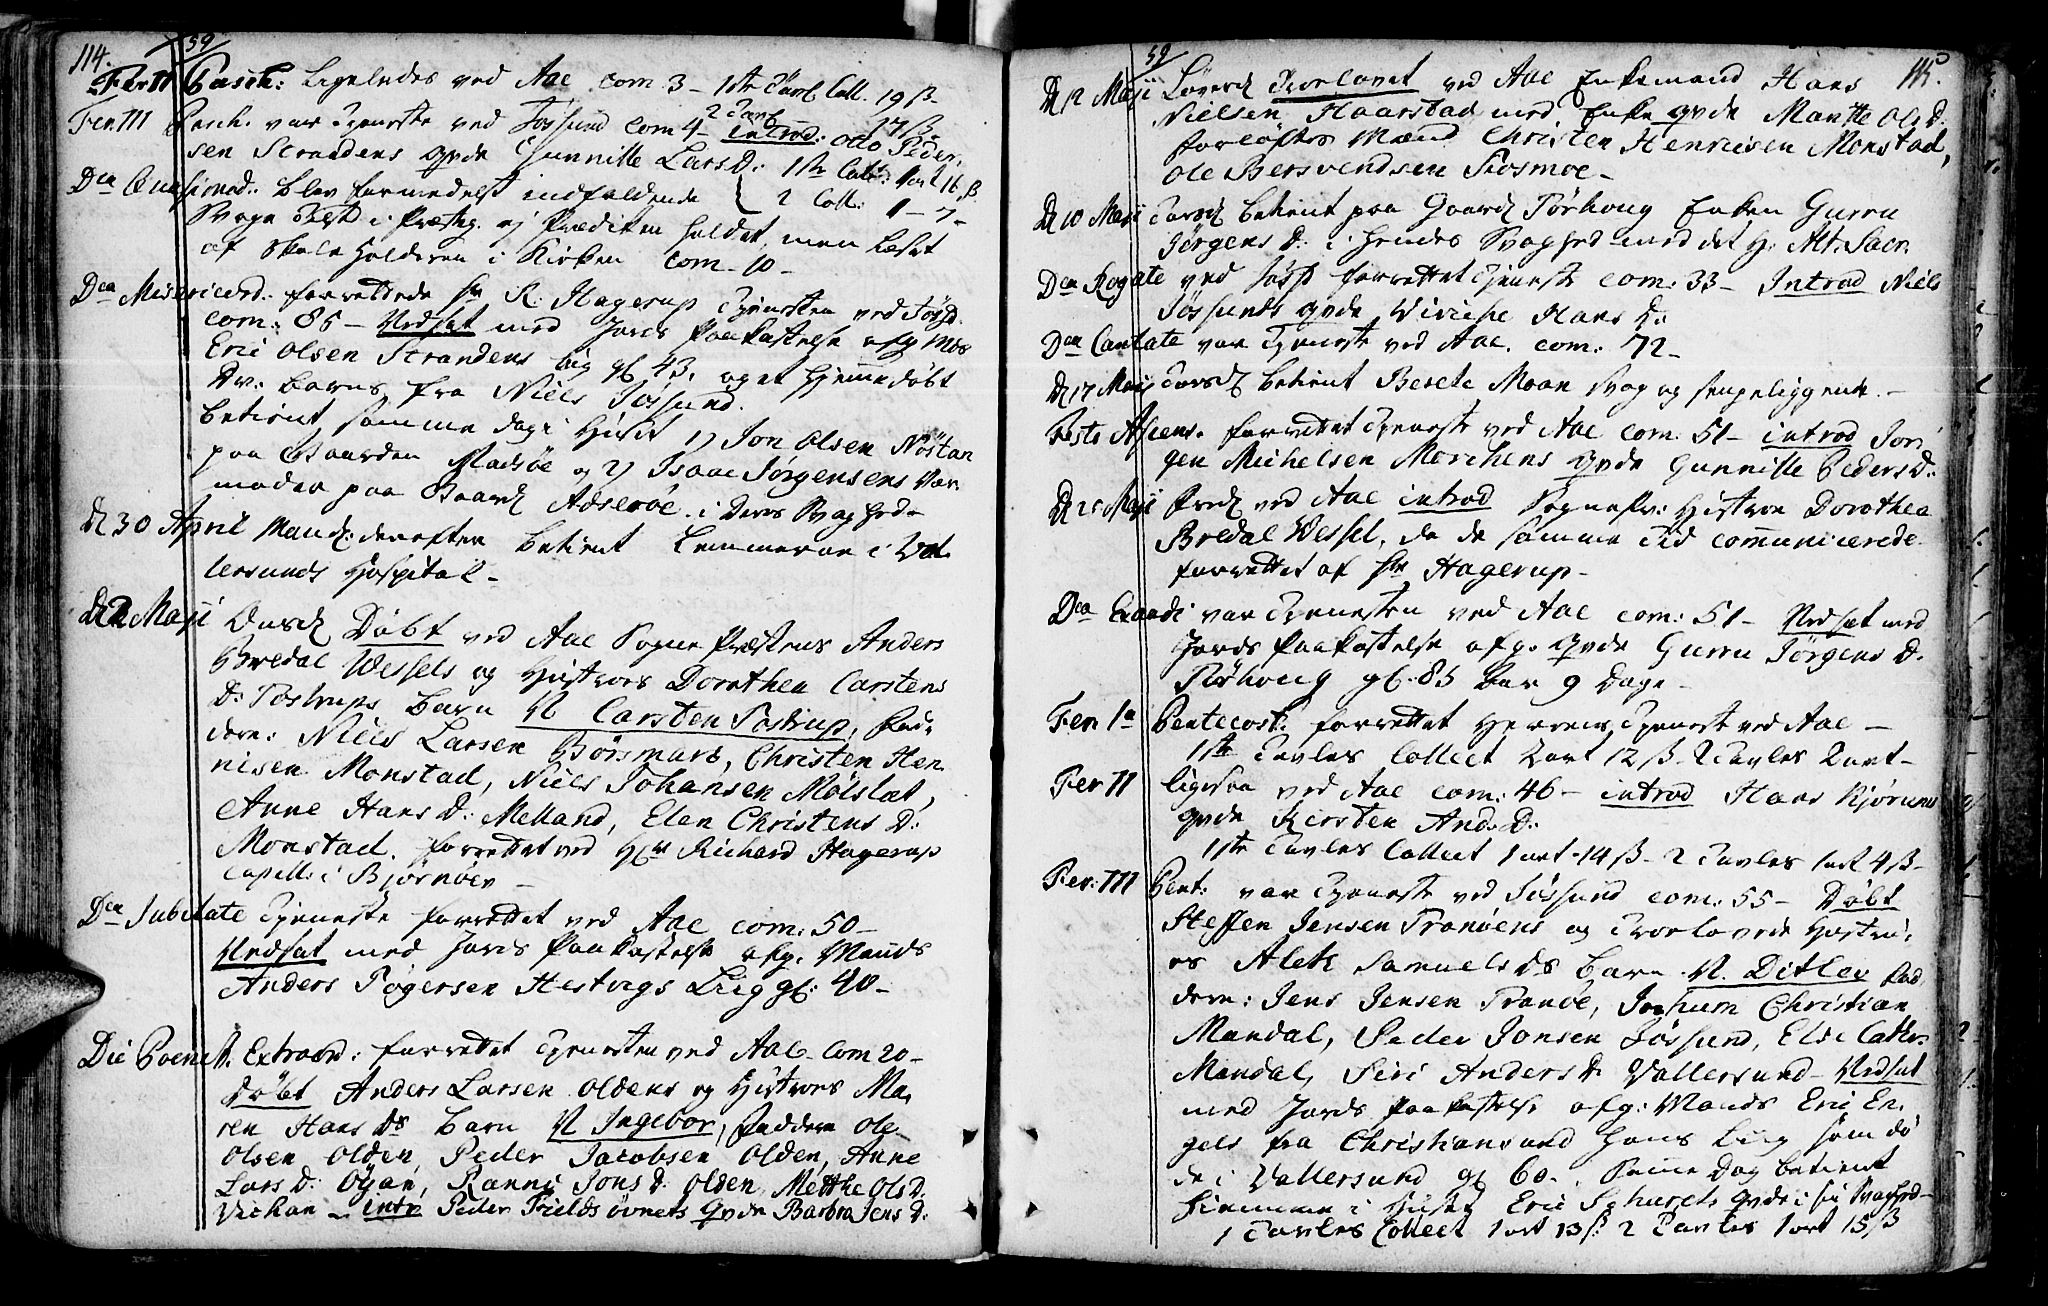 114.
59
Fer: II Pasch: Ligeledes ved Aae com 3 – 1ste Tavl Coll. 19 ß
2 Tavs 17 ß.
Fer. III Pasch. var Tjeneste ved Jössund Com 4 – introd: Otto Peder-
sen Strandens qvde Gunnille LarsD:
1ste Coll: 1 ort 16 ß
Dca Quasimod: blev formedelst indfaldende
2 Coll: 1 – 7 –
Svaghed i Præsteg. ej Prædiken holdet, men læst
af Skoleholderen i Kirken com – 10 –
Dca Misericord: forrettede Hr R: Hagerup Tjenesten ved Jössd
com: 85 – Nedsat med Jords Paakastelse afg Mds
Eric Olsen Strandens Lig gl 43, og et hjemmedöbt
Dr: barns fra Niels Jössund.
betient samme dag i Huset 1) Jon Olsen Nöstan
paa Gaarden Madsöe og 2) Isaac Jörgensens Vær-
moder paa Gaard Adseröe i deres Svaghed –
D 30 April Mand: derefter betient Lemmerne i Val-
lersunds Hospital –
D 2 Maji Onsd Döbt ved Aae Sogne Præstens Anders
Bredal Wessels og Hustroes Dorothea Carstens
D: Tostrups barn N Carsten Tostrup, Fad-
dere: Niels Larsen Börsmark, Christen Hen-
richsen Monstad, Niels Johansen Mölslæt,
Anne Hans D: Melland, Elen Christens D:
Monstad. forrettet ved Hr Richard Hagerup
Capell: i Björnöer –
Dca Jubilate Tjeneste forrettet ved Aae com: 50 –
Nedsat med Jords Paakastelse afg. Mands
Anders Tögersen Hestvigs Liig gl: 40 –
Die Poenit. Extraord: forrettet Tjenesten ved Aae – com 20 –
Döbt Anders Larsen Oldens og Hustroes Ma-
ren Hans Ds barn N Ingebor, Faddere Ole
Olsen Olden, Peder Jacobsen Olden, Anne
Lars D: Öyan, Ranni Jons D: Olden, Metthe Ols D:
Vichan – intr Peder Fieldsövnets Qvde Barbra Jens D:
59
115.
D 12 Maji Löverd Trovlovet ved Aae Enkemand Hans
Nielsen Haarstad med Enke qvde Manthe Ols D:
forlöftes Mænd Christen Henricsen Monstad,
Ole Bersvendsen Fosmoe –
D 10 Maji Torsd betient paa Gaard Törhoug Enken Gurru
Jörgens D: i hendes Svaghed med det H: Alt: Sacr.
Dca Rogate ved Jössd forrettet Tjeneste com: 33 – Introd Niels
Jössunds qvde Wiviche Hans D:
Dca Cantate var Tjeneste ved Aae. com: 72 –
D 17 Maji Torsd betient Berete Moan Svag og sengeliggende –
Festo Ascens. forrettet Tjeneste ved Aae com. 51 – introd Jör-
gen Michelsen Morchens qvde Gunnille Peders D:
D 25 Maji Fred ved Aae introd Sognepr: Hustroe Dorothea
Bredal Wessel, da de samme Tid communicerede
forrettet af Hr Hagerup –
Dca Exaudi var Tjenesten ved Aae com: 51 – Nedsat med
Jords Paakastelse afg. Qvde Gurru Jörgens D.
Törhoug gl. 85 Aar 9 Dage –
Fer. 1a Pentecost: forrettet Herrens Tjeneste ved Aae –
1ste Tavles Collect 2 ort 12 ß – 2 Tavles 2 ort –
Fer II ligesaa ved Aae com: 46 – introd Hans Kjörums
qvde Kirsten And: D:
1ste Tavles Collect 1 ort 14 ß – 2 Tavles 1 ort 4 ß –
Fer: III Pent: var Tjeneste ved Jössund com: 55 – Döbt
Steffen Jensen Tranöens og Trolovede Hustru-
es Aleth Samuels Ds barn N. Ditlev Fad-
dere: Jens Jensen Tranöe, Jochum Christian
Mandal, Peder Jonsen Jössund, Else Cathr.
Mandal, Siri Anders D: Vallersund – Nedsat
med Jords Paakastelse afg: Mands Eric En-
gels fra Christiansund Hans Liig som dö-
de i Vallersund gl 60. Samme Dag betient
hiemme i Huset Eric Schurets Qvde i sin Svaghed –
1 Tavles Collect 1 ort 13 ß: 2 Tavles 1 ort 15 ß